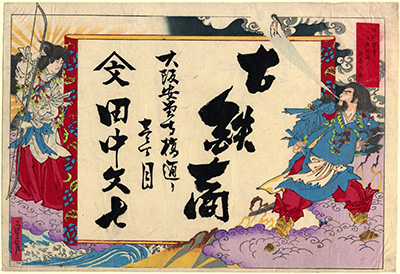 古鉄商
大阪安堂寺橋通り
壱丁目
文 田中文七